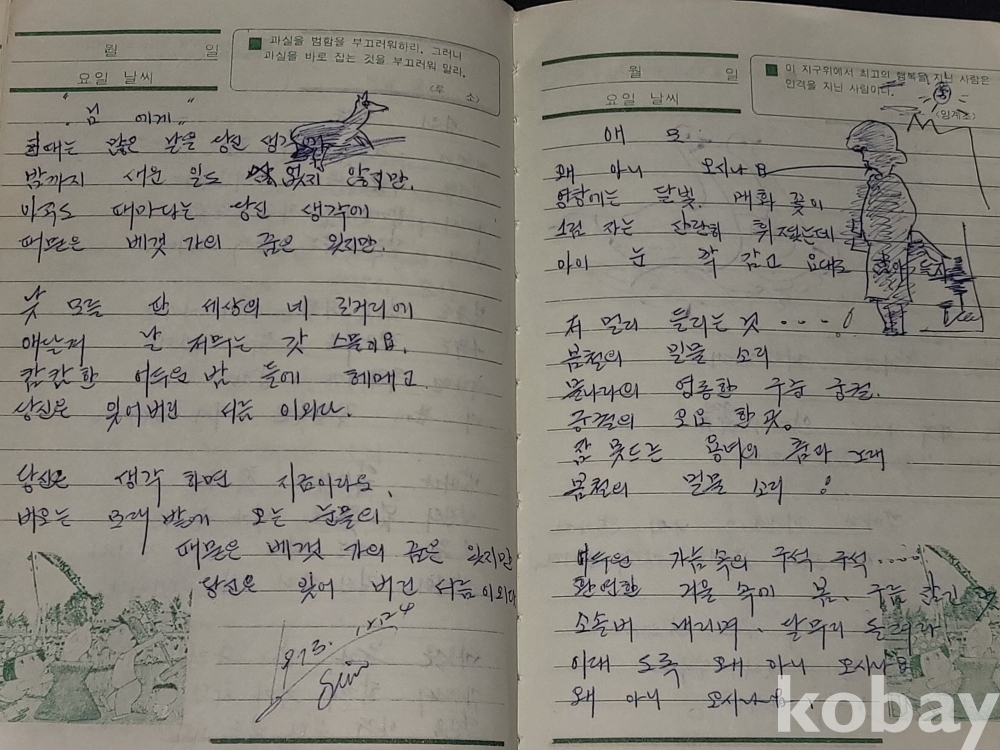 월 일
요일 날씨
과실을 범함을 부끄러워하라. 그러나
과실을 바로 잡는 것을 부끄러워 말라.
〈루 소〉
"님 에게"
한때는 많은 날을 당신 생각
밤까지 새운 일도 없지 않지만.
아직도 때마다는 당신 생각에
때묻은 베갯 가의 꿈은 있지만.
낯 모를 딴 세상의 네 길거리에
애달피 날 저무는 갓 스물이요.
캄캄한 어두운 밤 들에 헤메고
당신은 잊어버린 서름 이외다.
당신은 생각 하면 지금이라도,
비오는 모래 밭에 오는 눈물의
때묻은 베갯 가의 꿈은 있지만
당신은 잊어 버린 서름 이외다
월 일
요일 날씨
이 지구위에서 최고의 행복을 지닌 사람은
인격을 지닌 사람이다.
애 모
왜 아니 오시나요
영창에는 달빛. 매화 꽃이
그림 자는 산란히 휘젓는데
아이 눈 꽉 감고 요대로
저 멀리 들리는 것 ----!
봄철의 밀물 소리
물나라의 영롱한 구중 궁궐.
궁궐의 오요 한 곳。
잠 못드는 용녀의 춤과 노래
봄철의 밀물 소리!
어두운 가슴속의 구석 구석.....
환연한 거울 속에 봄. 구름 잠긴
소솔비 내리며. 달무리 둘려라
이대 도록 왜 아니 오시나요
왜 아니 오시나요.
kobay